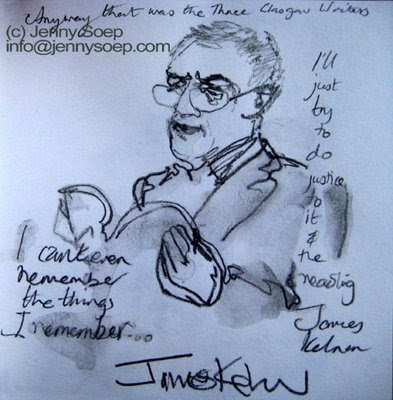 Anyway that was the Three Glasgow Writers
(c) Jenny Soep
info@jennysoep.com
I'll
just
try
to
do
justice
to
it &
the
reading
James
Kelman
I
can't even
remember
the things
I remember...